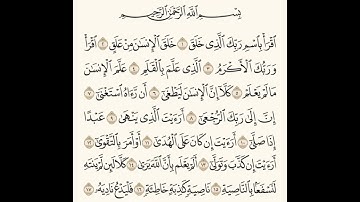 بِسْمِ ٱللَّهِ ٱلرَّحْمَٰنِ ٱلرَّحِيمِ
ٱقْرَأْ بِٱسْمِ رَبِّكَ ٱلَّذِى خَلَقَ ١ خَلَقَ ٱلْإِنسَٰنَ مِنْ عَلَقٍ ٢ ٱقْرَأْ
وَرَبُّكَ ٱلْأَكْرَمُ ٣ ٱلَّذِى عَلَّمَ بِٱلْقَلَمِ ٤ عَلَّمَ ٱلْإِنسَٰنَ
مَا لَمْ يَعْلَمْ ٥ كَلَّآ إِنَّ ٱلْإِنسَٰنَ لَيَطْغَىٰٓ ٦ أَن رَّءَاهُ ٱسْتَغْنَىٰٓ ٧
إِنَّ إِلَىٰ رَبِّكَ ٱلرُّجْعَىٰٓ ٨ أَرَءَيْتَ ٱلَّذِى يَنْهَىٰ ٩ عَبْدًا
إِذَا صَلَّىٰٓ ١٠ أَرَءَيْتَ إِن كَانَ عَلَى ٱلْهُدَىٰٓ ١١ أَوْ أَمَرَ بِٱلتَّقْوَىٰٓ ١٢
أَرَءَيْتَ إِن كَذَّبَ وَتَوَلَّىٰٓ ١٣ أَلَمْ يَعْلَم بِأَنَّ ٱللَّهَ يَرَىٰ ١٤ كَلَّا لَئِن لَّمْ يَنتَهِ
لَنَسْفَعًۢا بِٱلنَّاصِيَةِ ١٥ نَاصِيَةٍ كَٰذِبَةٍ خَاطِئَةٍ ١٦ فَلْيَدْعُ نَادِيَهُۥ ١٧